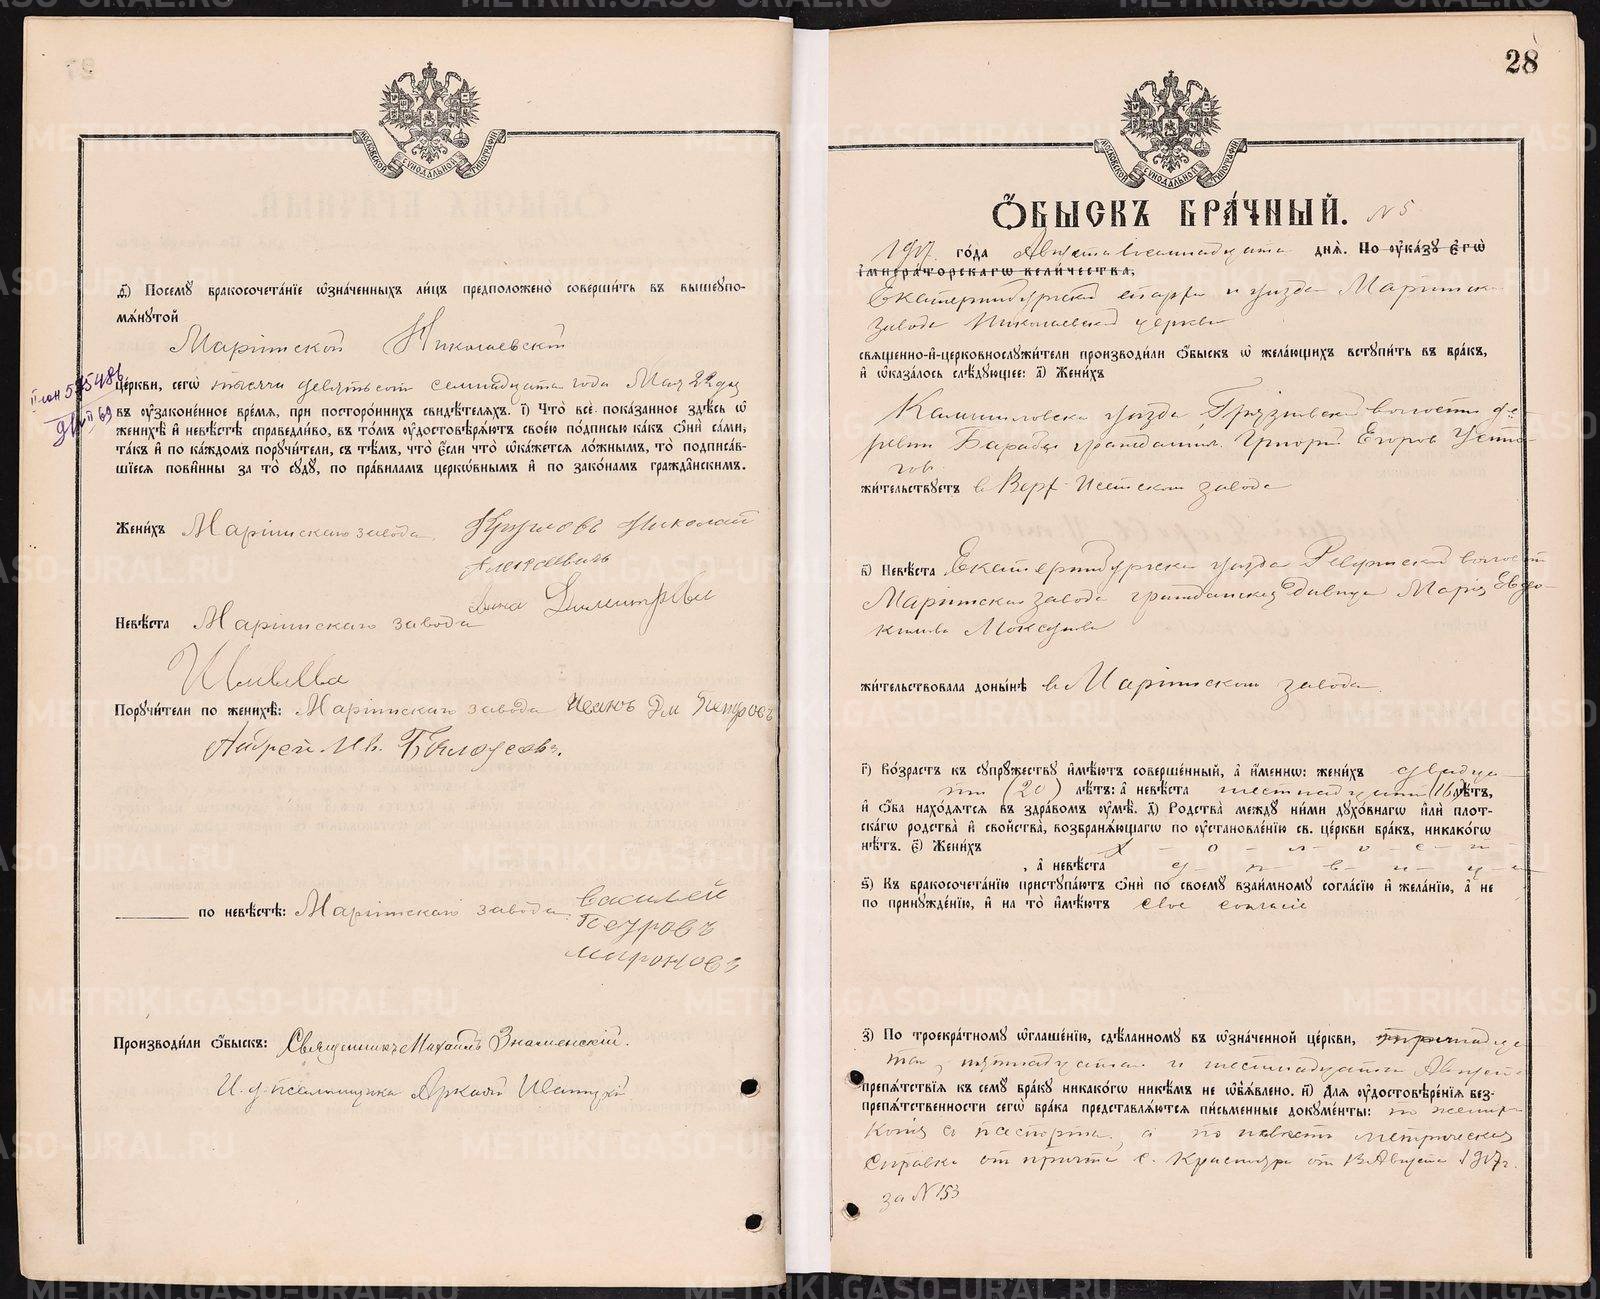 МОСКОВСКОЙ СѴНОДАЛЬНОЙ ТИПОГРАФІИ
д҃) Посемꙋ бракосочета́нїе ѡ҆зна́ченныхъ ли́цъ предположено̀ соверши́ть въ вышеꙋпо-
мѧ́нꙋтой
Маріинской Николаевской
це́ркви, сегѡ̀ тысяча девятьсот семнадцатаго года Мая 22 дня
въ ᲂу҆зако́ненное вре́мѧ, при посторо́ннихъ свидѣ́телѧхъ. і҃) Что̀ всѐ пока́занное здѣ́сь ѡ҆
женихѣ̀ и҆ невѣ́стѣ справедли́во, въ то́мъ ᲂу҆достовѣрѧ́ютъ свое́ю по́дписью ка́къ ѻ҆нѝ са́ми,
та́къ и҆ по ка́ждомъ порꙋчи́тели, съ тѣ́мъ, что̀ є҆́сли что̀ ѡ҆ка́жетсѧ ло́жнымъ, то̀ подписа́в-
шїесѧ пови́нны за то̀ сꙋдꙋ̀, по пра́виламъ церко́внымъ и҆ по зако́намъ гражда́нскимъ.
II лон 575486
Жени́хъ Маріинскаго завода Николай
Алексеевичь
Анна
Невѣ́ста Маріинскаго завода
Порꙋчи́тели по женихѣ̀: Маріинскаго завода Иванъ Дм Петровъ
Андрей Ив. Белоусовъ.
по невѣ́стѣ: Маріинскаго завода Василей
Петровъ
мироновъ
Производи́ли ѻ҆́быскъ: Священникъ Михаилъ Знаменскій.
И. д. псаломщика Аркадій
28
МОСКОВСКОЙ СѴНОДАЛЬНОЙ ТИПОГРАФІИ
Ѻ҆́БЫСКЪ БРА́ЧНЫЙ. № 5
1917 го́да Августа восемнадцатаго днѧ̀. По ᲂу҆ка́зꙋ Є҆гѡ̀
І҆мпера́торскагѡ вели́чества,
Екатеринбургской епархіи и уезда Маріинскаго
завода Николаевской церкви
свѧще́нно-и҆-церковнослꙋжи́тели производи́ли ѻ҆́быскъ ѡ҆ жела́ющихъ встꙋпи́ть въ бра́къ,
и҆ ѡ҆каза́лось слѣ́дꙋющее: а҃) Жени́хъ
Камышловскаго уезда Грязновской волости де-
ревни гражданин Григорій Егоров Устю-
гов
жи́тельствꙋетъ в Верх-Исетском заводе
в҃) Невѣ́ста Екатеринбургскаго уезда Ревдинской волости
Маріинскаго завода гражданская девица Марія Евдо-
кимова Мокеева
жи́тельствовала доны́нѣ в Маріинском заводе.
г҃) Во́зрастъ къ сꙋпрꙋ́жествꙋ и҆мѣ́ютъ соверше́нный, а҆ и҆́меннѡ: жени́хъ двадца-
ти (20) лѣ́тъ: а҆ невѣ́ста шестнадцати (16) лѣ́тъ,
и҆ ѻ҆́ба нахо́дѧтсѧ въ здра́вомъ ᲂу҆мѣ̀. д҃) Родства̀ междꙋ ни́ми дꙋхо́внагѡ и҆лѝ пло́т-
ска́гѡ родства̀ и҆ сво́йства, возбранѧ́ющагѡ по ᲂу҆становле́нїю св. це́ркви бра́къ, никако́гѡ
нѣ́тъ. є҃) Жени́хъ х - о - л - о - с - т
, а҆ невѣ́ста д - е - в - и - ц - а
ѕ҃) Къ бракосочета́нїю пристꙋпа́ютъ ѻ҆нѝ по своемꙋ̀ взаи́мномꙋ согла́сїю и҆ жела́нїю, а҆ не
по принꙋжде́нїю, и҆ на то̀ и҆мѣ́ютъ свое согласие
з҃) По троекра́тномꙋ ѡ҆глаше́нїю, сдѣ́ланномꙋ въ ѡ҆зна́ченной це́ркви, тринадца-
таго, пятнадцатаго и шестнадцатаго Августа
препѧ́тствїѧ къ семꙋ̀ бра́кꙋ никако́гѡ никѣ́мъ не ѡ҆б̾ѧ́влено. и҃) Длѧ ᲂу҆достовѣре́нїѧ без-
препѧ́тственности сегѡ̀ бра́ка представлѧ́ютсѧ пи́сьменные докꙋме́нты: по жениху
копія с паспорта, а по невесте метрическая
справка от причта с. Красноярск от 13 Августа 1917 г.
за № 153